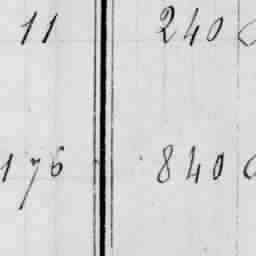 11 240
176 840